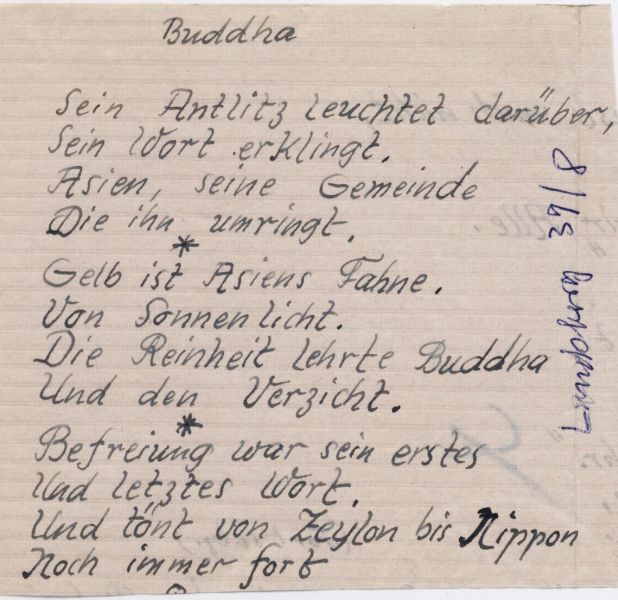 Buddha
Sein Antlitz leuchtet darüber,
Sein Wort erklingt.
Asien, seine Gemeinde
Die ihn umringt.
*
Gelb ist Asiens Fahne.
Von Sonnenlicht.
Die Reinheit lehrte Buddha
Und den Verzicht.
*
Befreiung war sein erstes
Und letztes Wort.
Und tönt von Zeylon bis Nippon
Noch immer fort
8/43